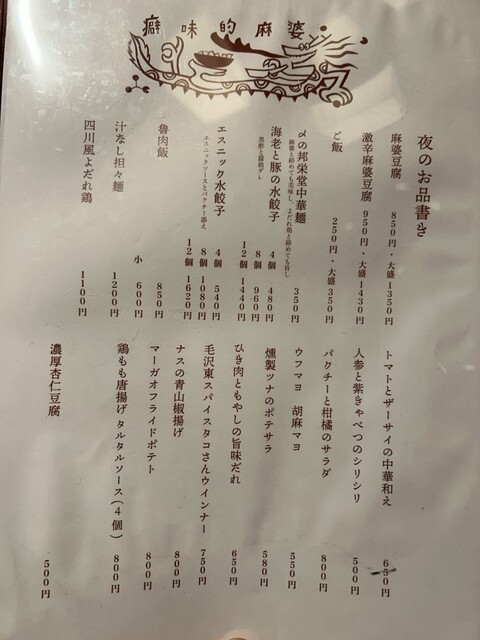 癖味的麻婆
夜のお品書き
麻婆豆腐 850円・大盛1350円
激辛麻婆豆腐 950円・大盛1430円
ご飯 250円・大盛350円
〆の邦栄堂中華麺 350円
麻婆と絡めても美味し。よだれ鶏と絡めても旨し
海老と豚の水餃子 4個 480円
黒酢と醤油ダレ
8個 960円
12個 1440円
エスニック水餃子 4個 540円
エスニックソースとパクチー添え
8個 1080円
12個 1620円
魯肉飯 850円
小 600円
汁なし担々麺 1200円
四川風よだれ鶏 1100円
トマトとザーサイの中華和え 650円
人参と紫きゃべつのシリシリ 500円
パクチーと柑橘のサラダ 800円
ウフマヨ 胡麻マヨ 550円
燻製ツナのポテサラ 580円
ひき肉ともやしの旨味だれ 650円
毛沢東スパイスタコさんウインナー 750円
ナスの青山椒揚げ 800円
マーガオフライドポテト 800円
鶏もも唐揚げ タルタルソース(4個) 800円
濃厚杏仁豆腐 500円